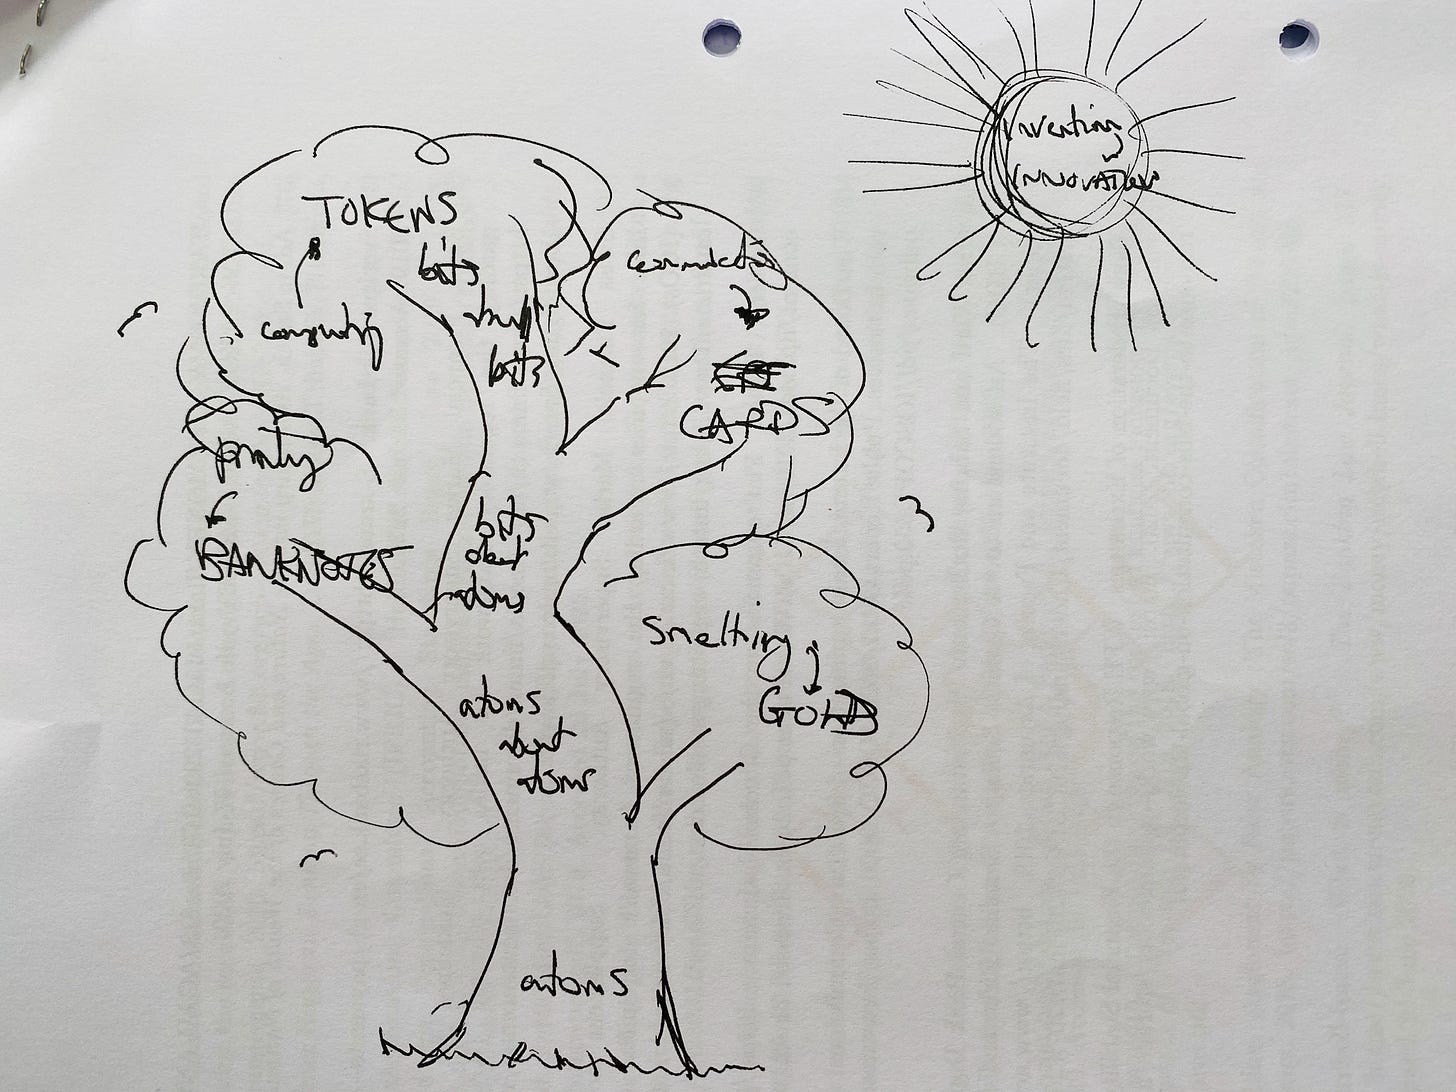 Inventing
INNOVATION
TOKENS
bits
about
bits
computing
communicating
CARDS
printing
BANKNOTES
bits
about
atoms
Smelting
GOLD
atoms
about
atoms
atoms